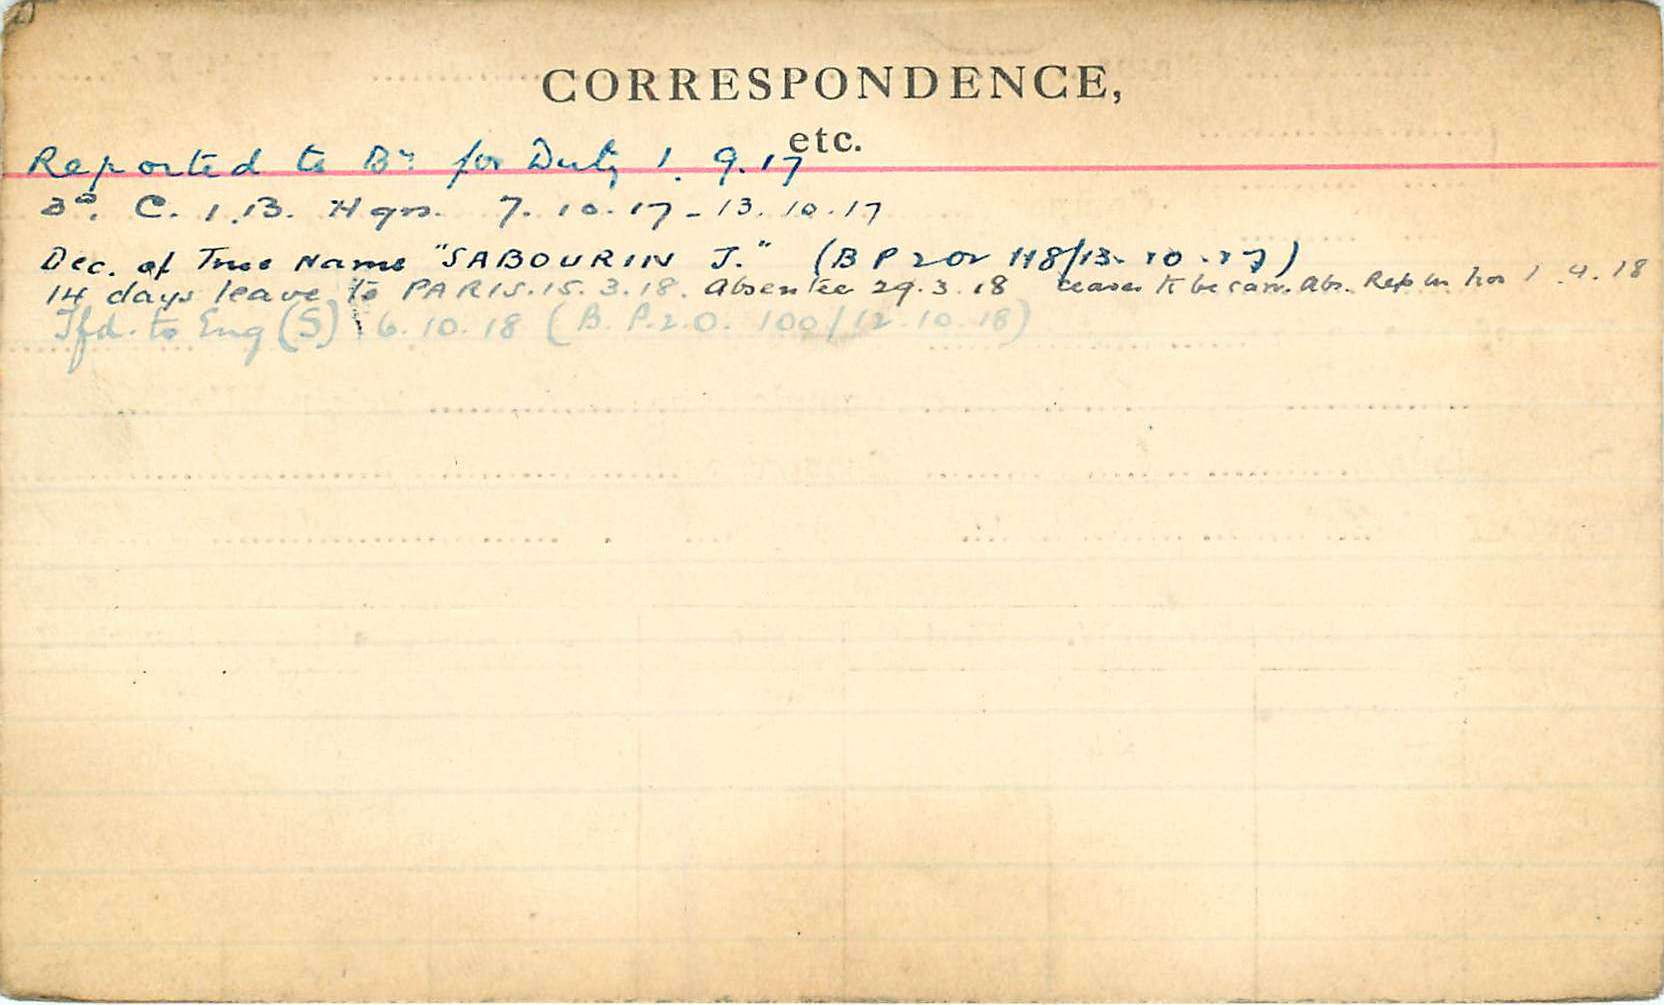 CORRESPONDENCE,
etc.
Reported to Bn for Duty 1.9.17
3rd. C.I.B. Hqrs. 7.10.17 - 13.10.17
Dec. of True Name "SABOURIN J." (B P 2 Or 118/13.10.17)
14 days leave to PARIS. 15.3.18. Absentee 29.3.18 ceases to be carr. Abs. Rep in 1.4.18
Tfd. to Eng (S) 6.10.18 (B.P.2.O. 100/12.10.18)